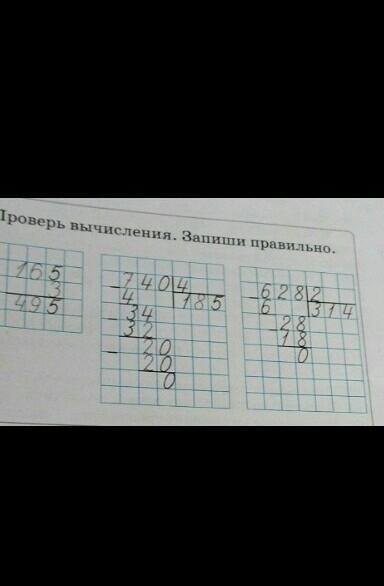 Проверь вычисления. Запиши правильно.
165
3
495
- 740 4
4 185
- 34
32
- 20
20
0
- 628 2
6 314
- 28
18
0